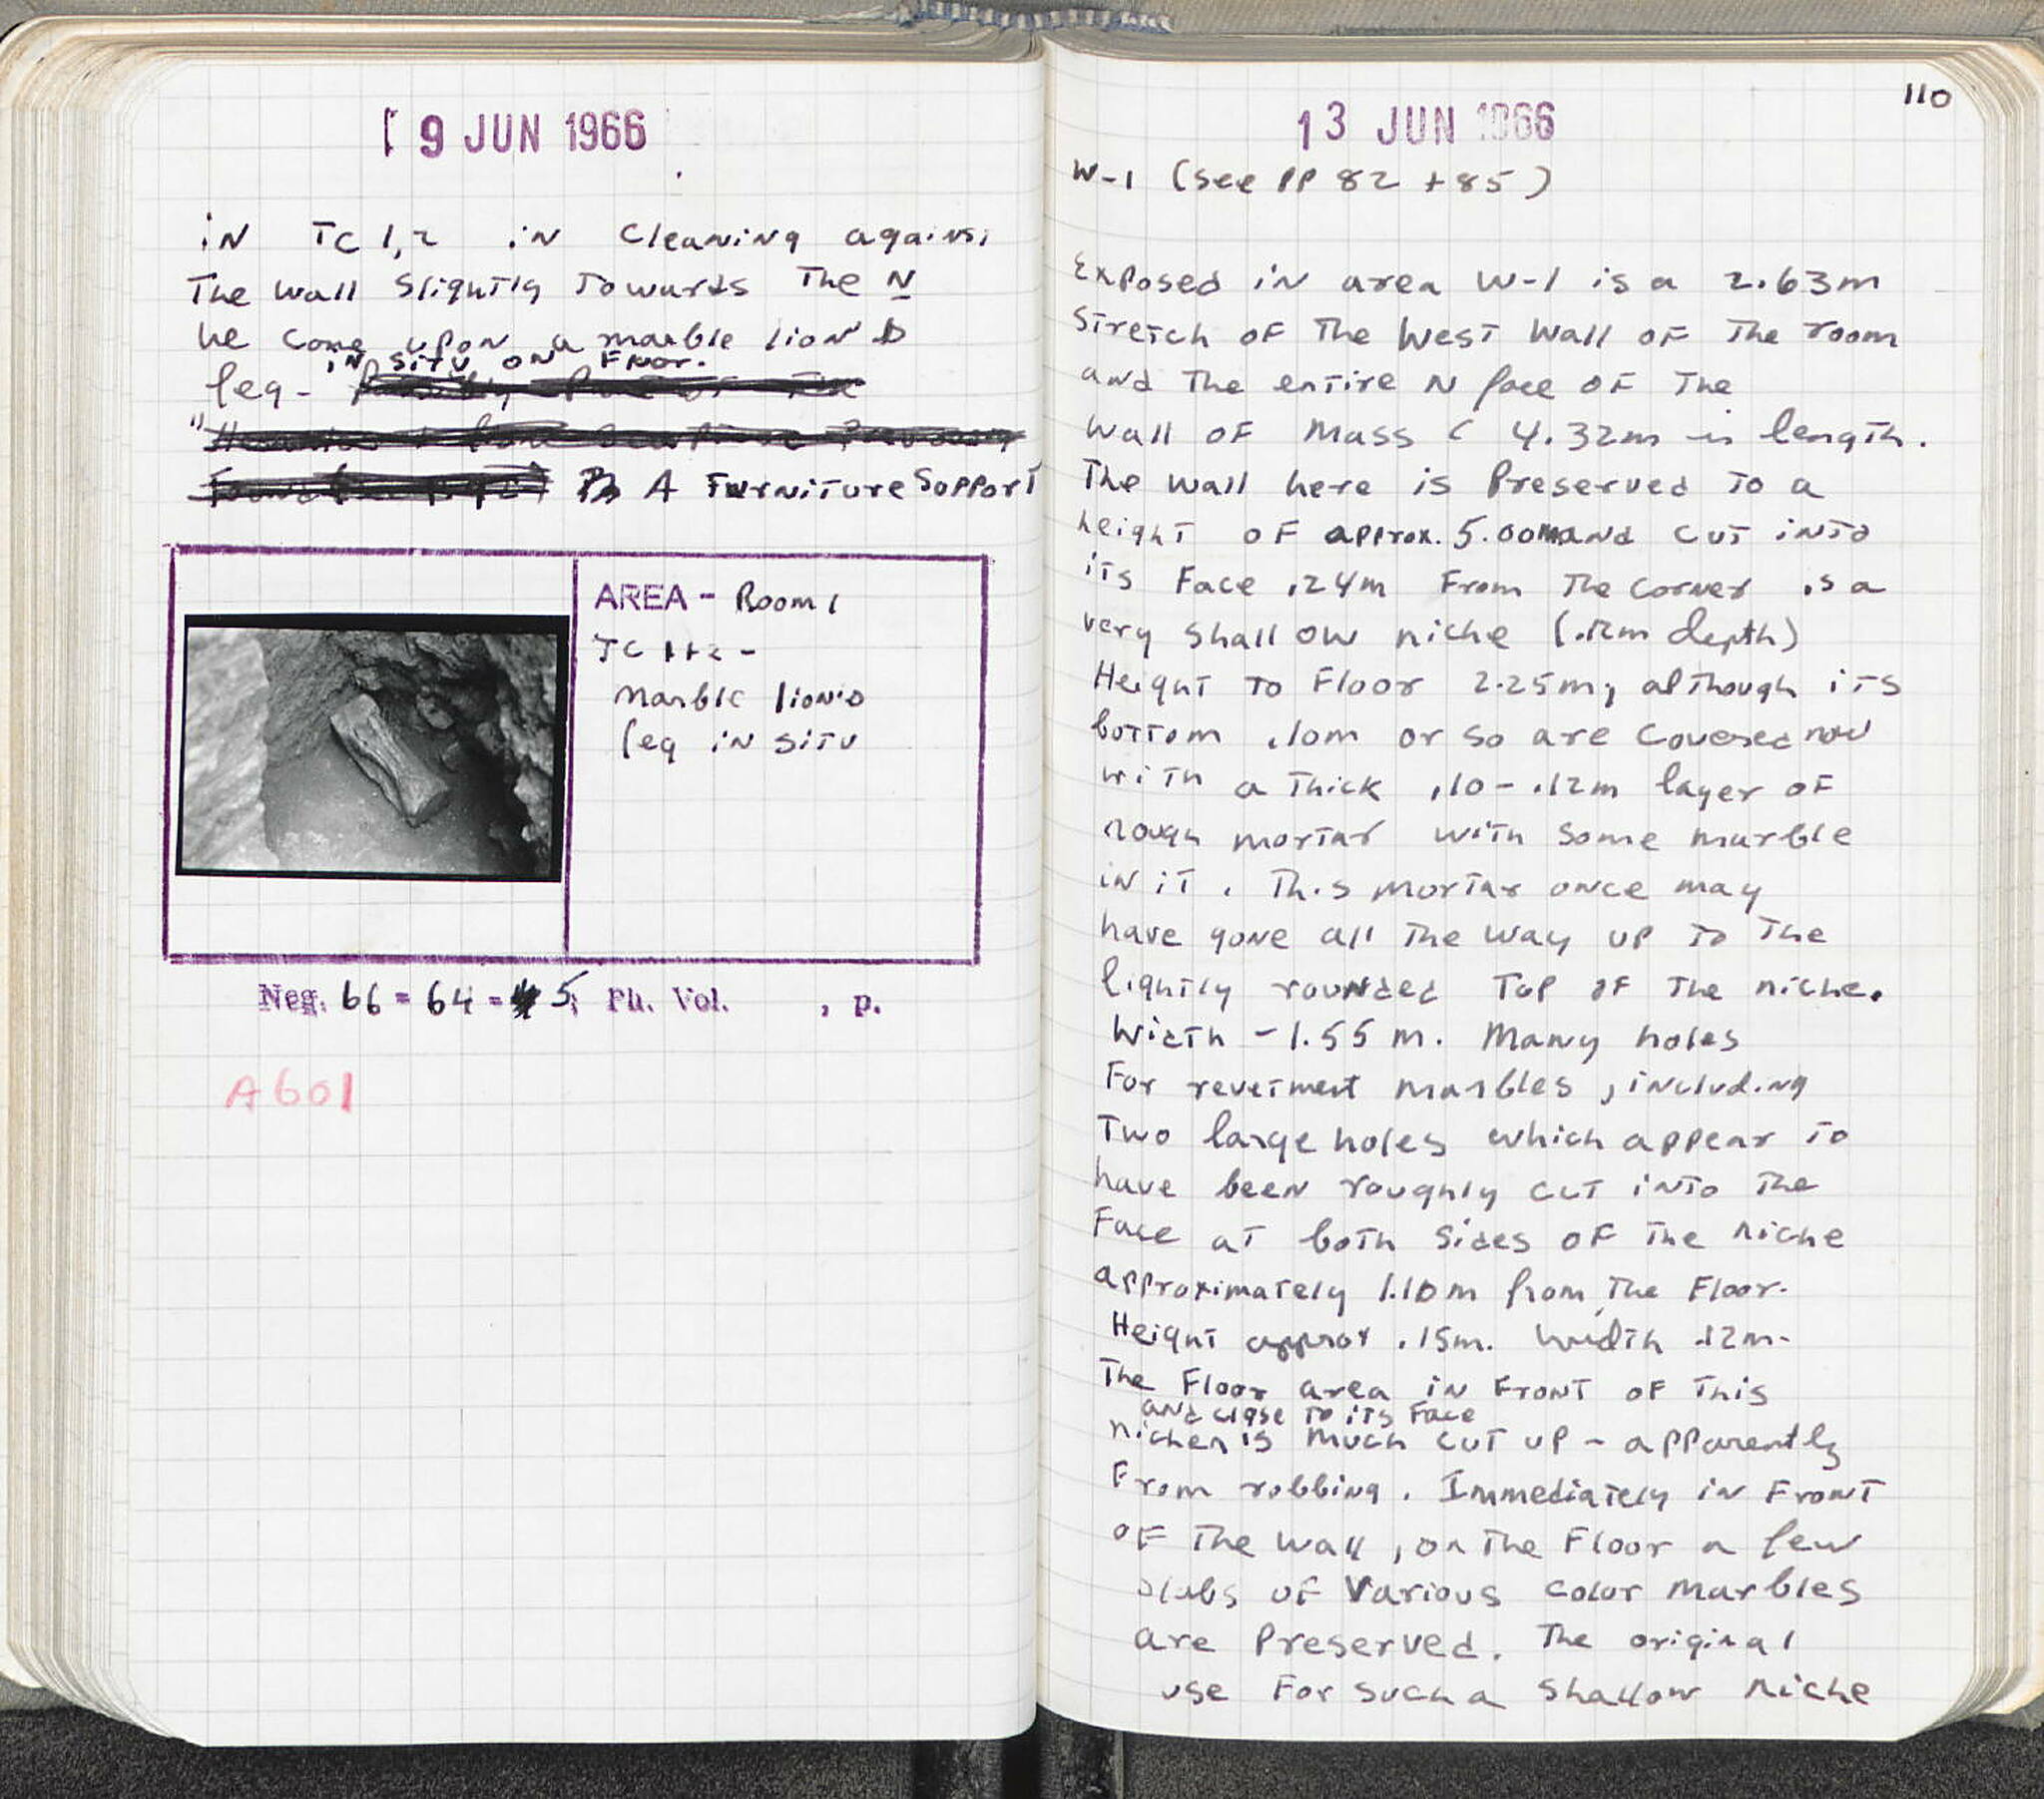 9 JUN 1966
in TC 1,2 in cleaning against
The wall slightly towards The N
we come upon a marble lion's
in situ on Floor.
leg -
A Furniture Support
AREA - Room 1
TC 1+2 -
Marble lion's
leg in situ
Neg. 66 - 64 - 5; Ph. Vol. , p.
A601
110
13 JUN 1966
W-1 (see pp 82 + 85)
Exposed in area W-1 is a 2.63m
stretch of The West Wall of The room
and The entire N face of The
wall of Mass C 4.32m in length.
The wall here is preserved to a
height of approx. 5.00m and cut into
its Face .24m From The corner is a
very shallow niche (.12m depth)
Height to Floor 2.25m, although its
bottom .10m or so are covered now
with a thick .10 - .12m layer of
rough mortar with some marble
in it. This mortar once may
have gone all The way up to The
lightly rounded Top of The niche.
Width - 1.55 m. Many holes
For revetment marbles, including
Two large holes which appear to
have been roughly cut into The
Face at both sides of The niche
approximately 1.10m from The Floor.
Height approx .15m. Width .12m.
The Floor area in Front of This
and close to its Face
niche is much cut up - apparently
From robbing. Immediately in Front
of The wall, on The Floor a few
slabs of various color marbles
are preserved. The original
use For such a shallow niche